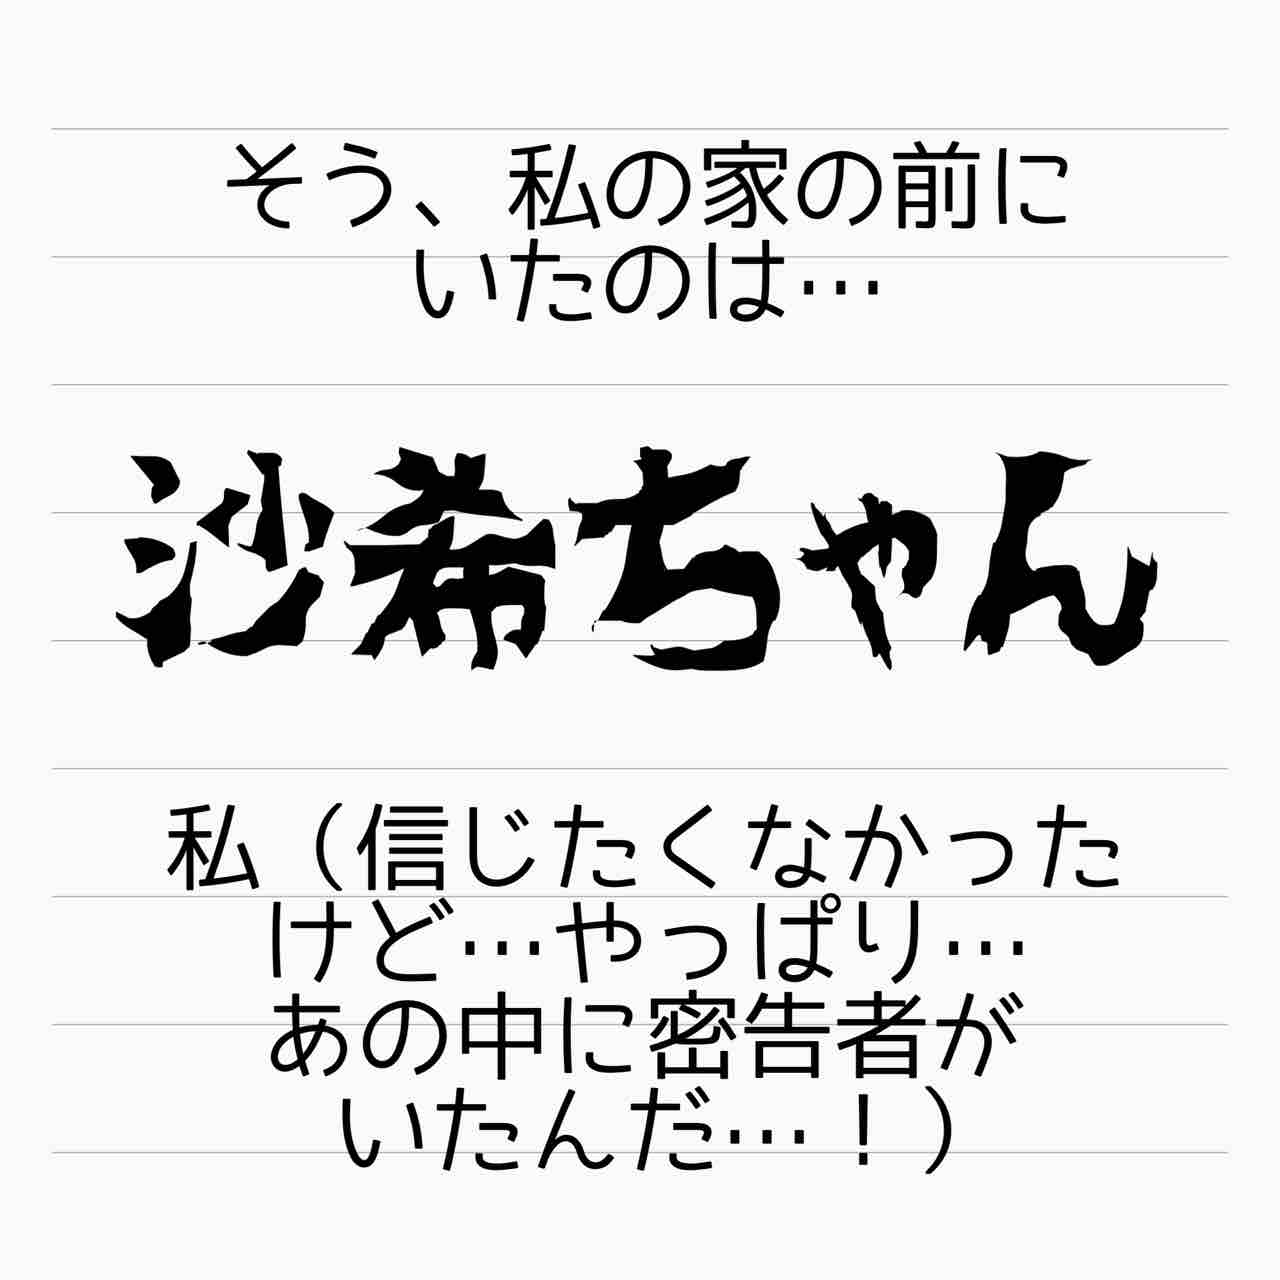 そう、私の家の前に
いたのは…
沙希ちゃん
私（信じたくなかった
けど…やっぱり…
あの中に密告者が
いたんだ…！）